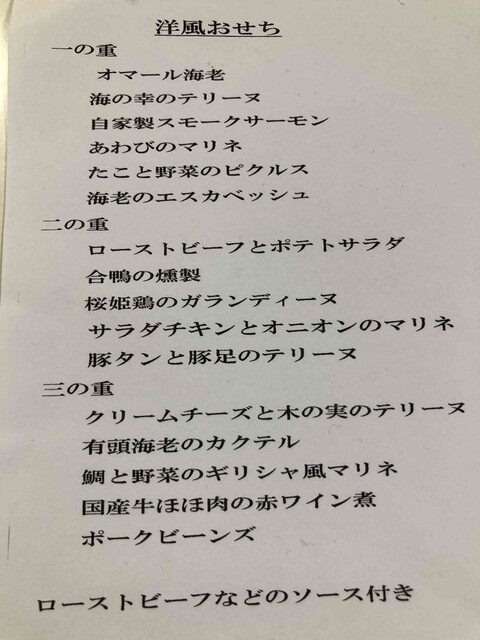 洋風おせち
一の重
オマール海老
海の幸のテリーヌ
自家製スモークサーモン
あわびのマリネ
たこと野菜のピクルス
海老のエスカベッシュ
二の重
ローストビーフとポテトサラダ
合鴨の燻製
桜姫鶏のガランディーヌ
サラダチキンとオニオンのマリネ
豚タンと豚足のテリーヌ
三の重
クリームチーズと木の実のテリーヌ
有頭海老のカクテル
鯛と野菜のギリシャ風マリネ
国産牛ほほ肉の赤ワイン煮
ポークビーンズ
ローストビーフなどのソース付き